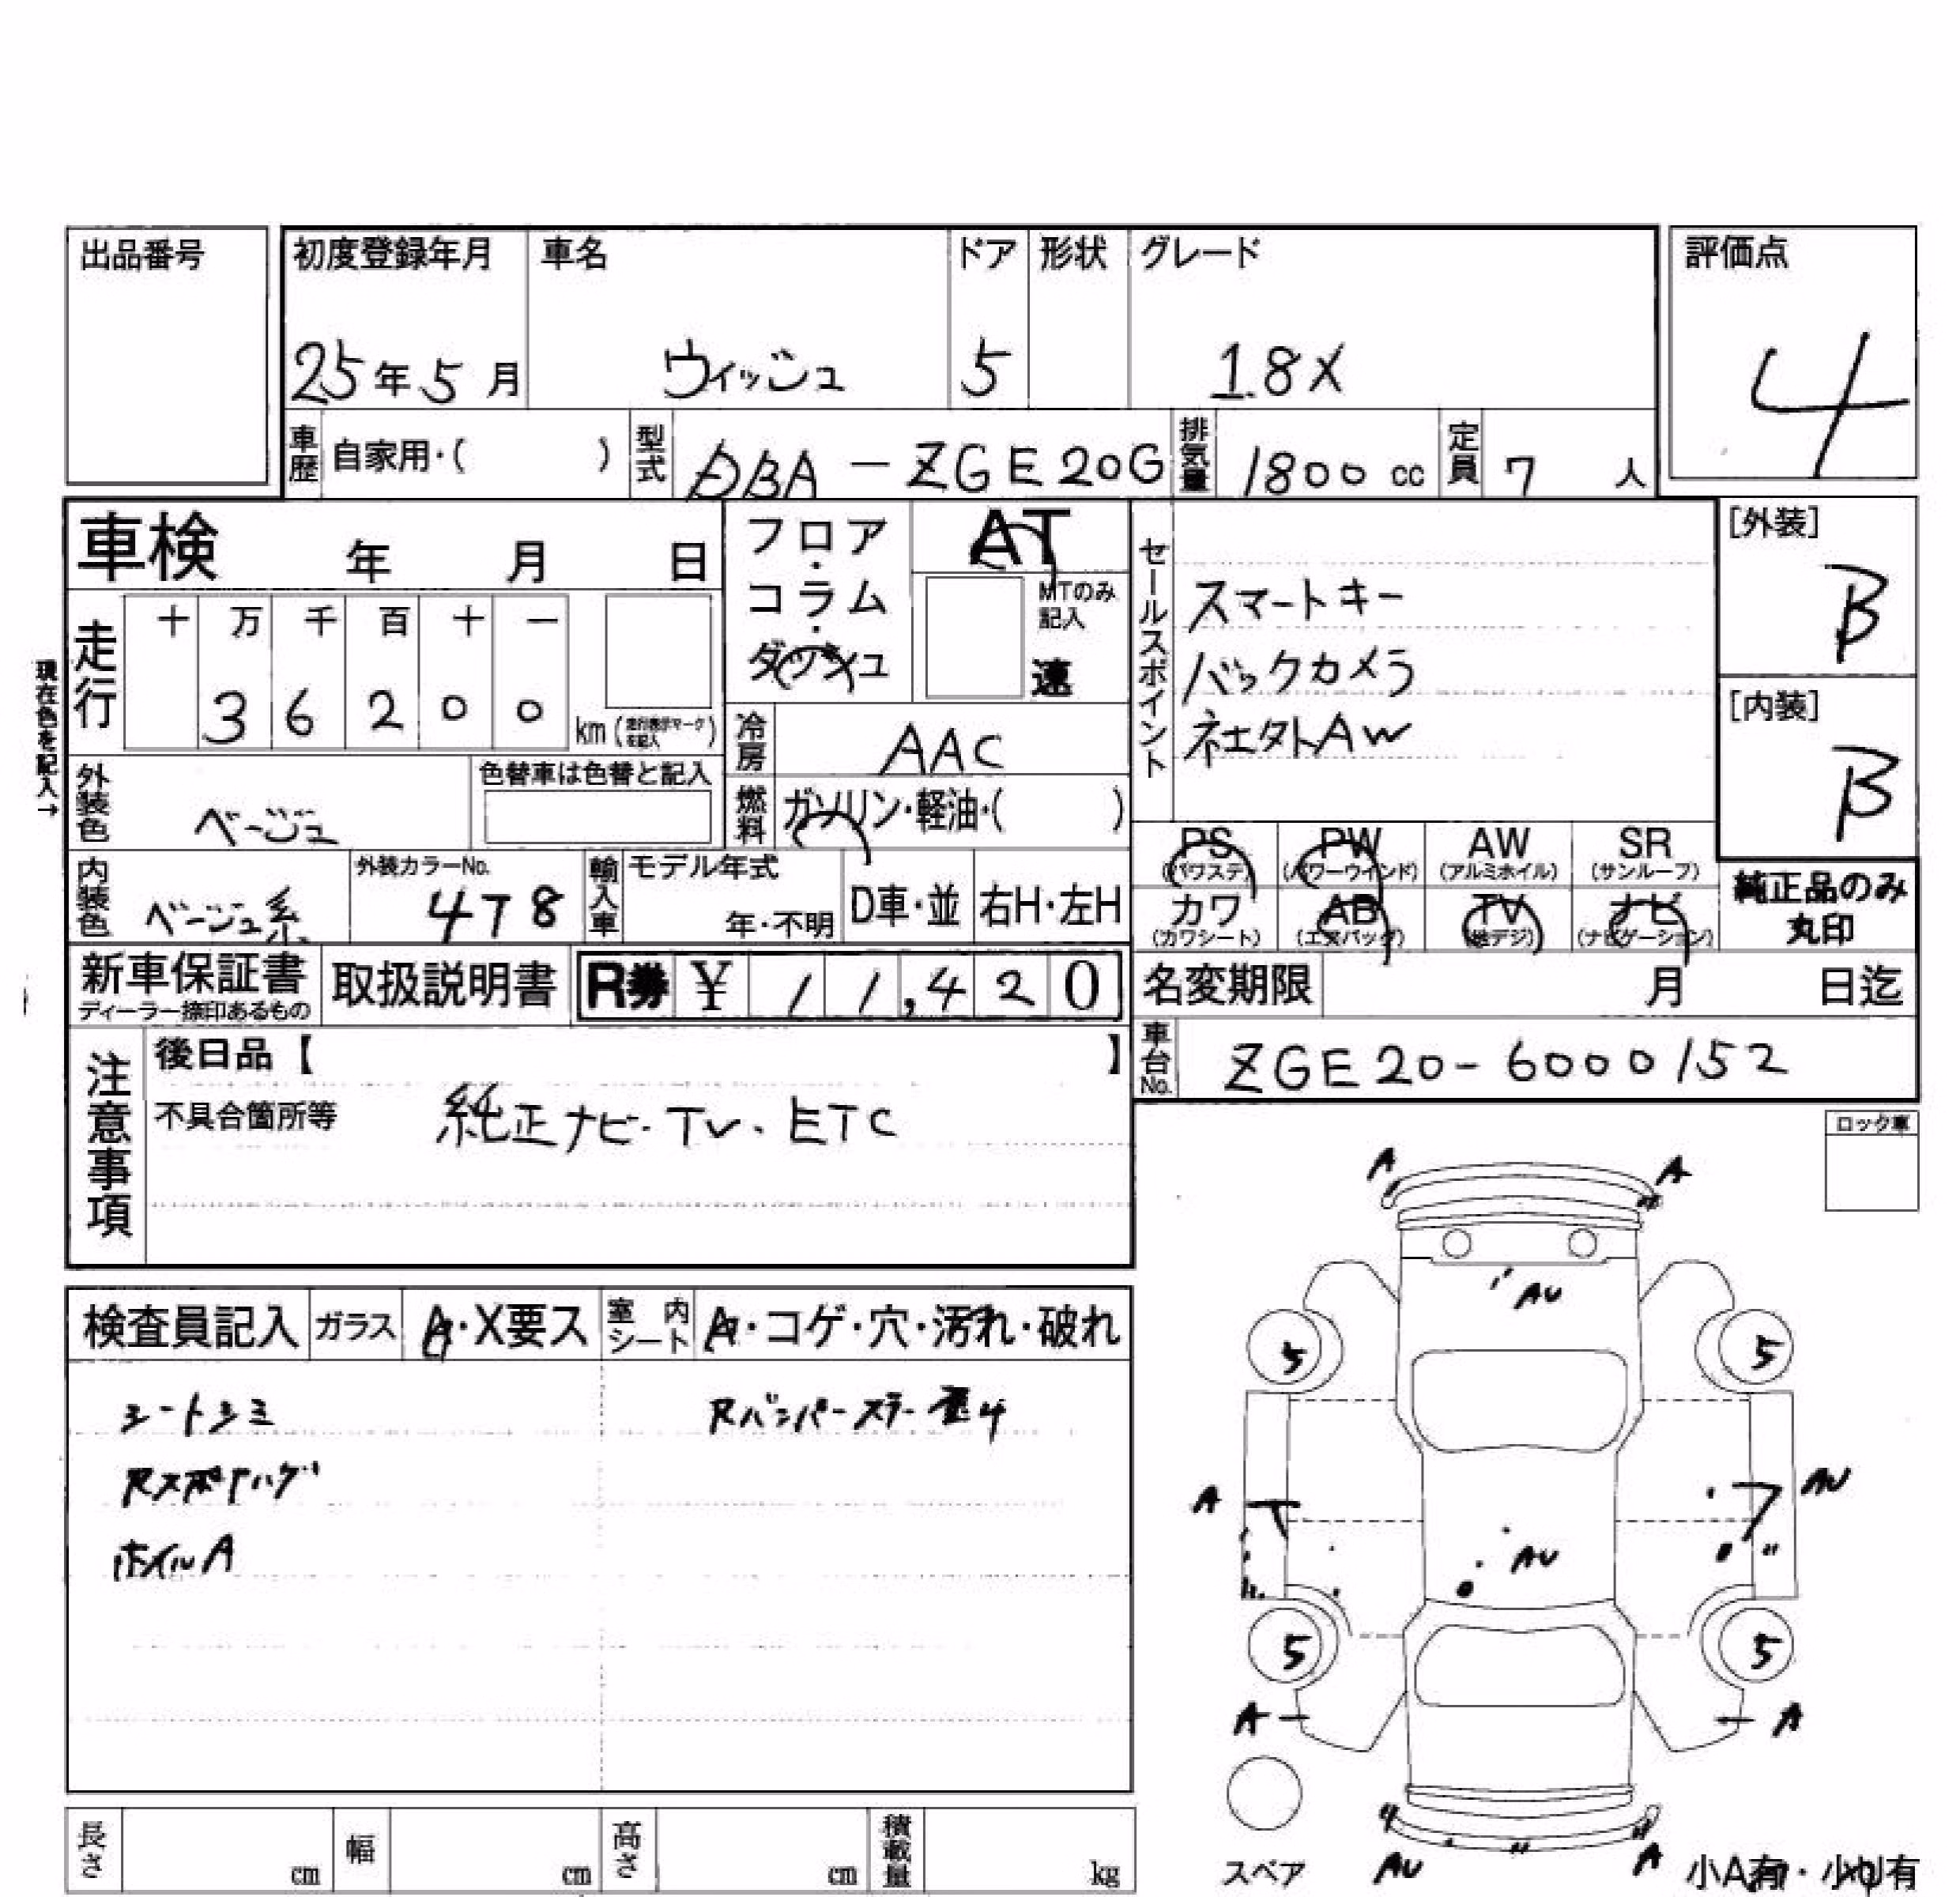 出品番号
初度登録年月 車名 ドア 形状 グレード
評価点
25年5月 ウィッシュ 5 1.8X
4
車歴 自家用・( ) 型式 DBA-ZGE20G 排気量 1800cc 定員 7人
車検 年 月 日
フロア・コラム・ダッシュ
AT
MTのみ記入
速
セールスポイント
スマートキー
バックカメラ
社外AW
[外装]
B
[内装]
B
現在色を記入→
走行 十万千百十一
36200 km(走行表示マークを記入)
冷房 AAC
外装色 ベージュ 色替車は色替と記入
燃料 ガソリン・軽油・( )
PS PW AW SR
(パワステ) (パワーウインド) (アルミホイル) (サンルーフ)
内装色 ベージュ系 外装カラーNo. 4T8 輸入車 モデル年式 年・不明 D車・並 右H・左H
カワ AB TV ナビ
(カワシート) (エアバッグ) (地デジ) (ナビゲーション)
純正品のみ
丸印
新車保証書 取扱説明書 R券 ¥11,420
ディーラー捺印あるもの
名変期限 月 日迄
注意事項
後日品【 】
車台No. ZGE20-6000152
不具合箇所等 純正ナビ・TV・ETC
ロック車
検査員記入 ガラス A・X要ス 室内シート A・コゲ・穴・汚れ・破れ
シートシミ Rバンパーステー歪4
ホイルA
A A
AU
5 5
A AU
AU 〃
5 5
A A
4 〃 〃
AU A
スペア 小A有・小U有
長さ cm 幅 cm 高さ cm 積載量 kg